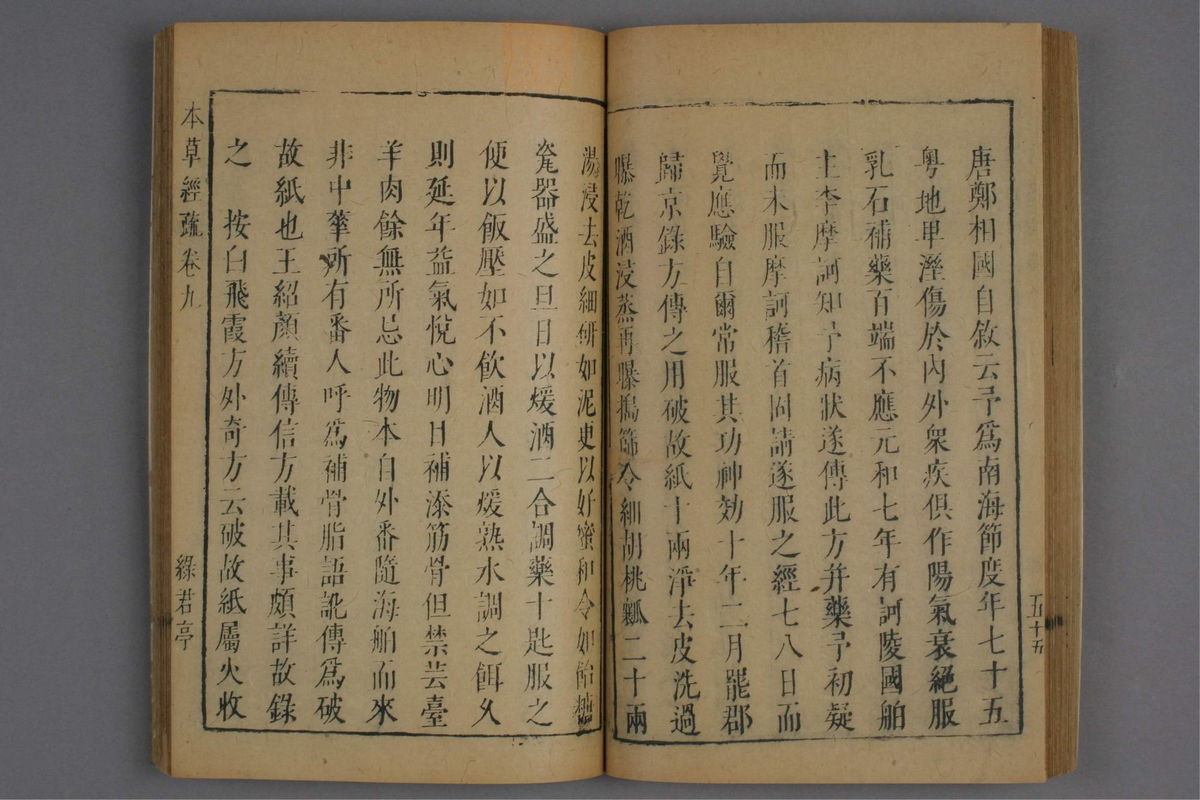 唐鄭相國自敘云予爲南海節度年七十五
粤地卑溼傷於內外衆疾俱作陽氣衰絕服
乳石補藥百端不應元和七年有訶陵國舶
主李摩訶知予病狀遂傳此方并藥予初疑
而未服摩訶稽首固請遂服之經七八日而
覺應驗自爾常服其功神効十年二月罷郡
歸京錄方傳之用破故紙十兩淨去皮洗過
曝乾酒浸蒸再曝搗篩令細胡桃瓤二十兩
五十五
湯浸去皮細研如泥更以好蜜和令如飴糖
瓷器盛之旦日以煖酒二合調藥十匙服之
便以飯壓如不飲酒人以煖熟水調之餌久
則延年益氣悅心明目補添筋骨但禁芸臺
羊肉餘無所忌此物本自外番隨海舶而來
非中華所有番人呼爲補骨脂語訛傳爲破
故紙也王紹顏續傳信方載其事頗詳故錄
之 按白飛霞方外奇方云破故紙屬火收
本草經疏卷九
綠君亭